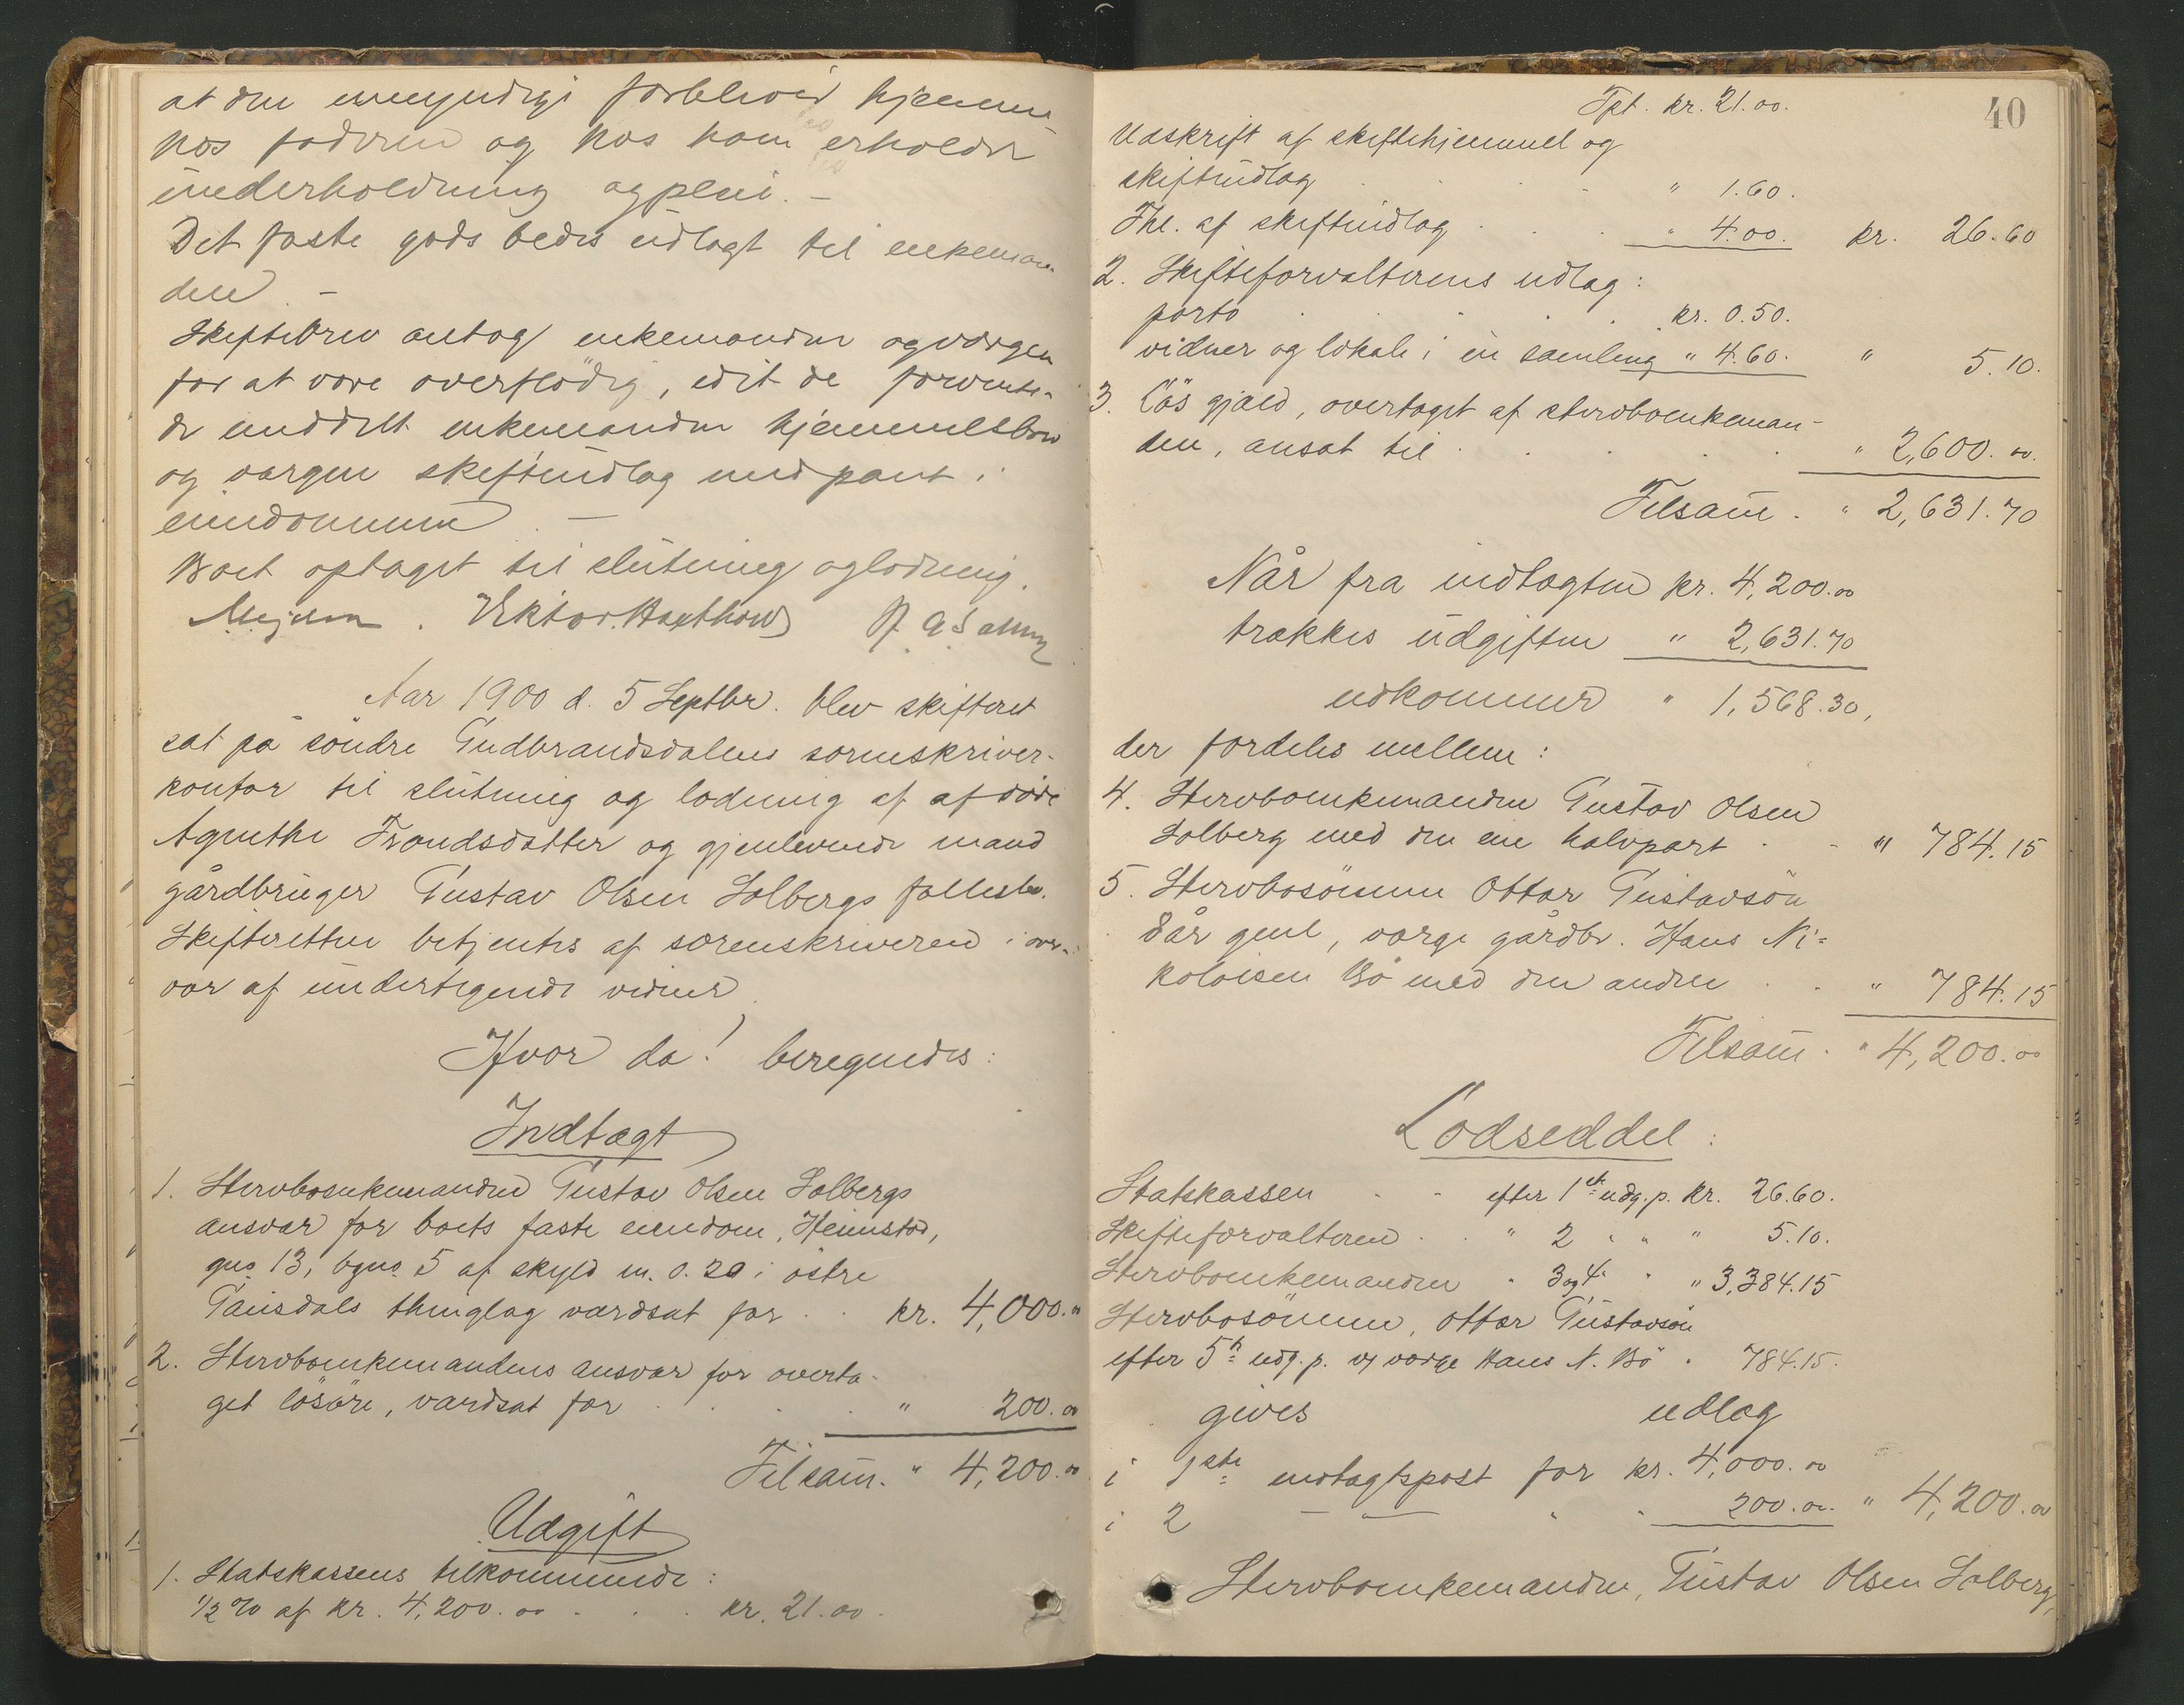 at den umyndige forbliver hjemme
hos faderen og hos ham erholder
underholdning og pleie. –
Det faste gods bedes udlagt til enkeman-
den. –
Skiftebrev antog enkemanden og værgen
for at være overflødig, idet de forvente-
de meddelt enkemanden hjemmelsbrev
og værgen skifteudlæg med pant i
eiendommen. –
Boet optaget til slutning og lodning.
Mejdell. Viktor Haxthow
Aar 1900 d. 5 Septbr. blev skifteret
sat på söndre Gudbrandsdalens sorenskriver-
kontor til slutning og lodning af afdöde
Agnethe Trondsdatter og gjenlevende mand
gårdbruger Gustav Olsen Solbergs fællesbo.
Skifteretten betjentes af sorenskriveren i over-
vær af undertegnede vidner
Hvor da! beregnedes:
Indtægt
1. Stervboenkemanden Gustav Olsen Solbergs
ansvar for boets faste eiendom, Heimstad,
gno. 13, bgno. 5 af skyld m. 0.20 i östre
Gausdals thinglag værdsat for . . kr. 4,000.00
2. Stervboenkemandens ansvar for overta-
get lösöre, værdsat for . . . . " 200.00
Tilsam. " 4,200.00
Udgift
1. Statskassens tilkommende:
1/2 % af kr. 4,200.00 . . . kr. 21.00.
40
Tpt. kr. 21.00.
Udskrift af skiftehjemmel og
skifteudlæg . . . " 1.60.
Thl. af skifteudlæg . . . " 4.00. kr. 26.60
2. Skifteforvalterens udlæg:
porto . . . . kr. 0.50.
vidner og lokale i en samling " 4.60. " 5.10.
3. Lös gjæld, overtaget af stervboenkeman-
den, ansat til . . . . . " 2,600.00.
Tilsam. " 2,631.70
Når fra indtægten kr. 4,200.00
trækkes udgiften " 2,631.70
udkommer " 1,568.30,
der fordeles mellem:
4. Stervboenkemanden Gustav Olsen
Solberg med den ene halvpart . . " 784.15
5. Stervbosönnen Ottar Gustavsön
8 år gml, værge gårdbr. Hans Ni-
kolaisen Bö med den anden . . " 784.15
Tilsam. " 4,200.00
Lodseddel:
Statskassen . . efter 1ste udg. p. kr. 26.60.
Skifteforvalteren . . " 2 " " " 5.10.
Stervboenkemanden " 3 og 4 " " 3,384.15
Stervbosönnen, Ottar Gustavsön
efter 5te udg. p. v/ værge Hans N. Bö " 784.15.
gives udlæg
i 1ste indtægtspost for kr. 4,000.00
i 2 – " – " " 200.00. " 4,200.00
Stervboenkemanden, Gustav Olsen Solberg,